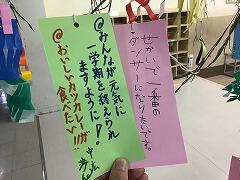 せかいで一番の
ダンサーになりたいです。
@みんなが元気に
一学期を終えられ
ますように!
@おいしいカツカレーが
食べたい!!!